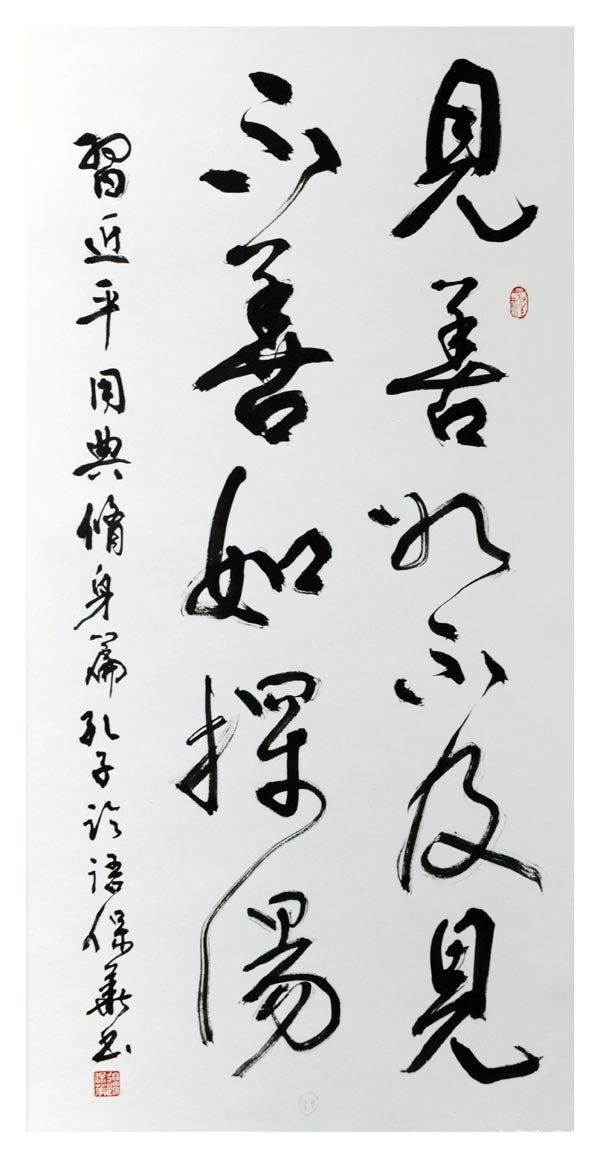 見善如不及見
不善如探湯
習近平用典脩身篇孔子論語保華書